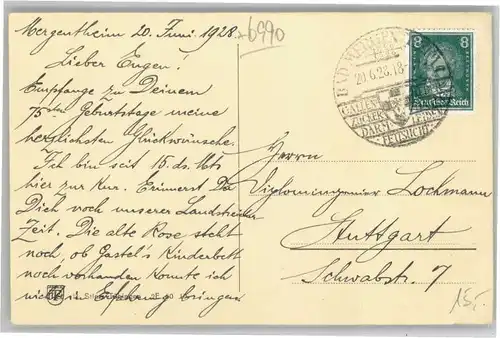 Mergentheim 20. Juni 1928.
+6990
Lieber Eugen!
Empfange zu Deinem
75sten Geburtstage meine
herzlichsten Glückwünsche.
Ich bin seit 15. ds. Mts
hier zur Kur. Erinnerst Du
Dich noch unserer Landstreicher
Zeit. Die alte Rose steht
noch, ob Gastel's Kinderbett
noch vorhanden konnte ich
nicht in Erfahrung bringen
BAD MERGENTHEIM
20.6.28.18
GALLEN
ZUCKER
DARM
LEBER
FETTSUCHT
8 8
Deutsches Reich
Herrn
Diplomingenieur Lochmann
Stuttgart
Schwabstr. 7
15,-